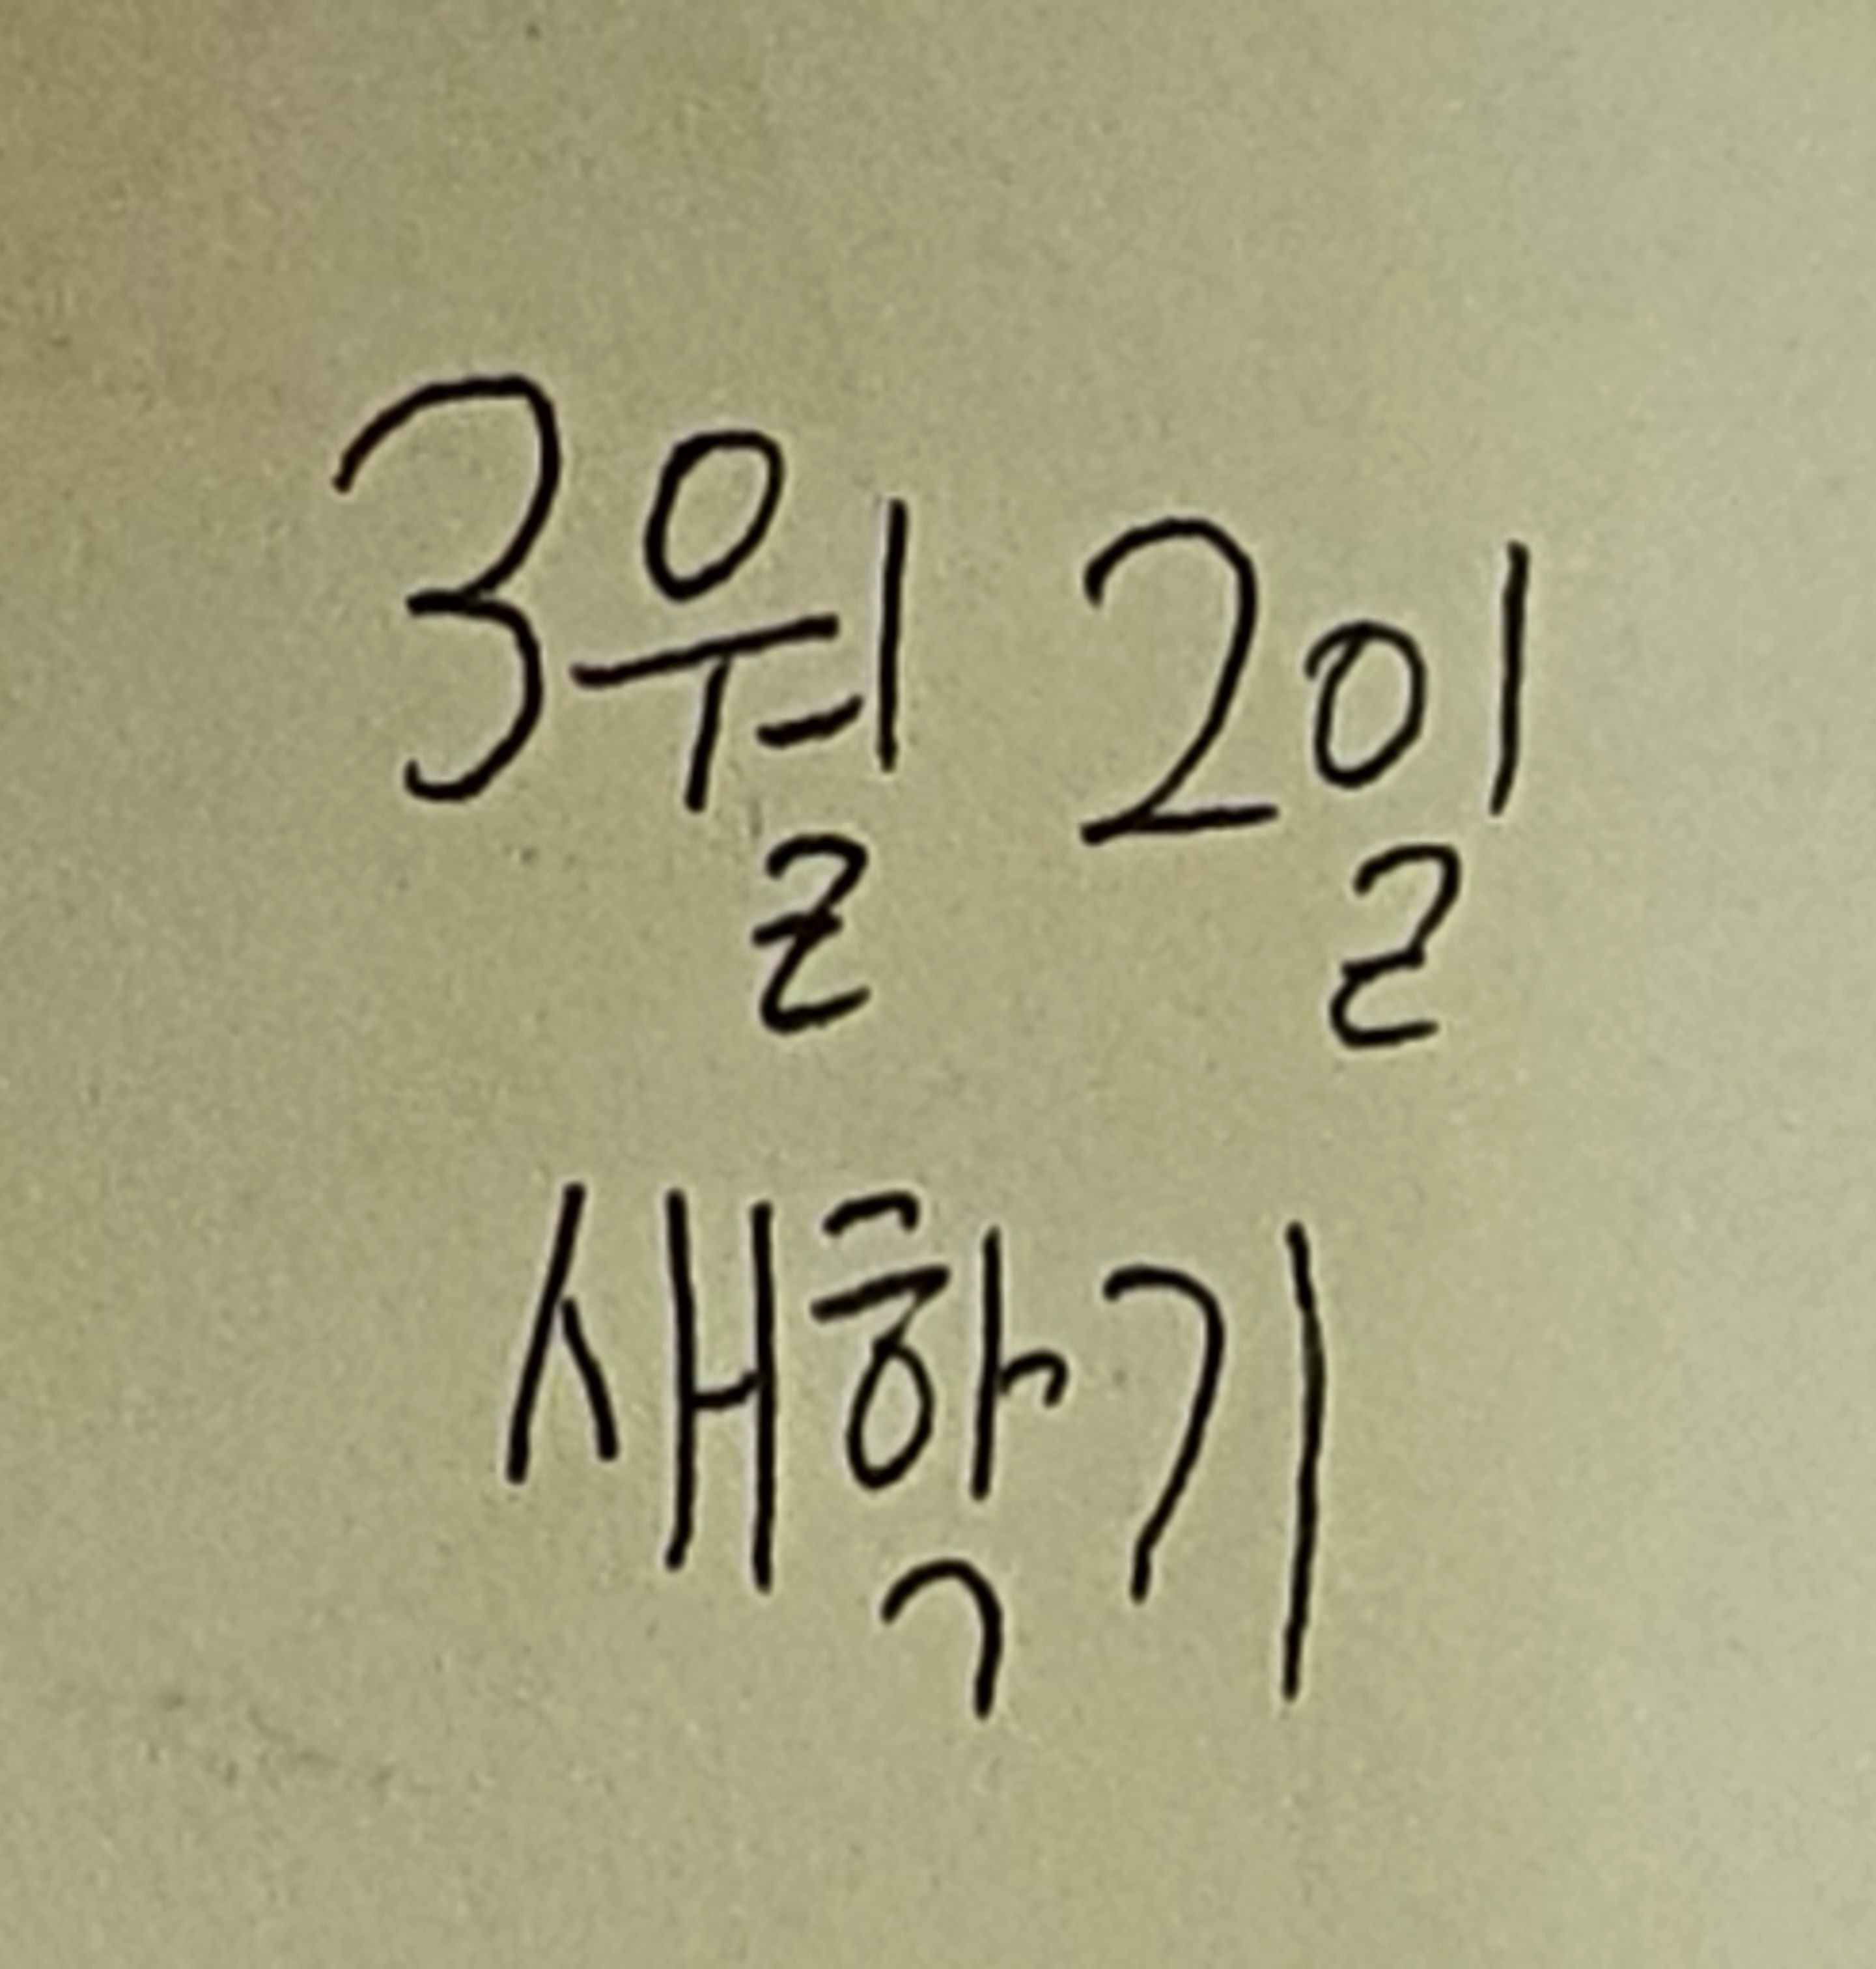 3월 2일
새학기